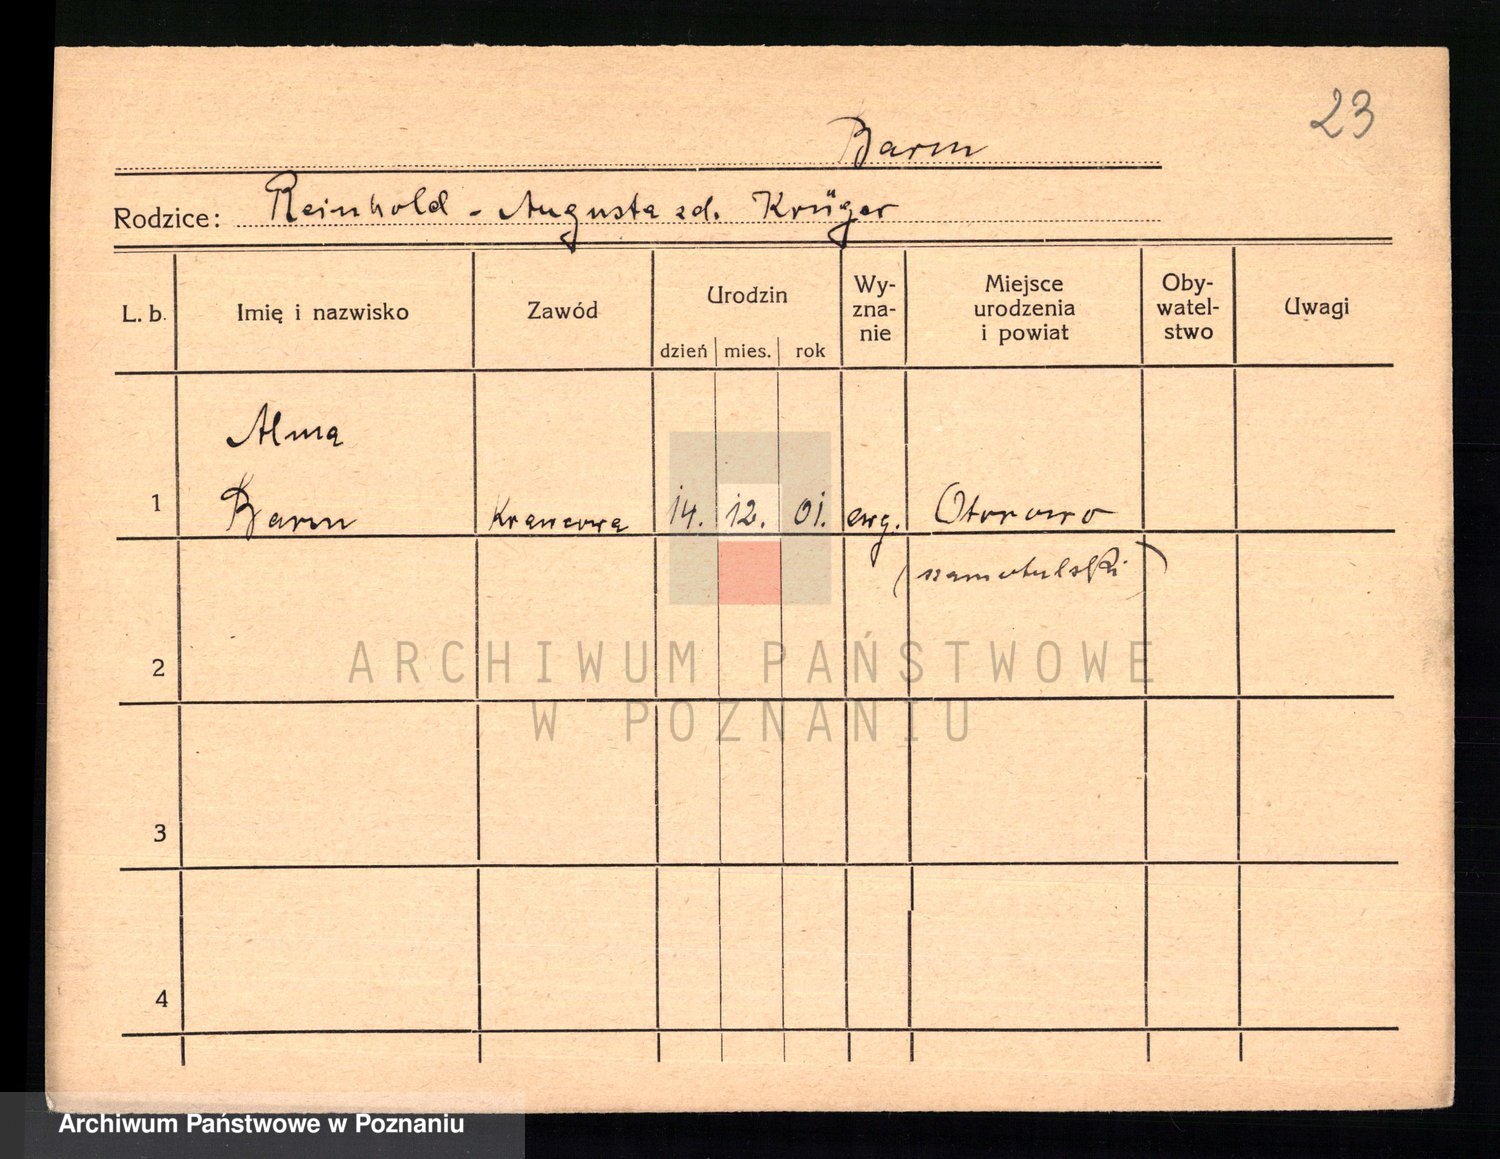 23
Barm
Rodzice: Reinhold - Augusta zd. Krüger
L. b. Imię i nazwisko Zawód Urodzin Wy-zna-nie Miejsce urodzenia i powiat Oby-watel-stwo Uwagi
dzień mies. rok
Alma
1 Barm Krawcowa 14. 12. 01. ewg. Otorowo
(szamotulski)
2
3
4
ARCHIWUM PAŃSTWOWE
W POZNANIU
Archiwum Państwowe w Poznaniu